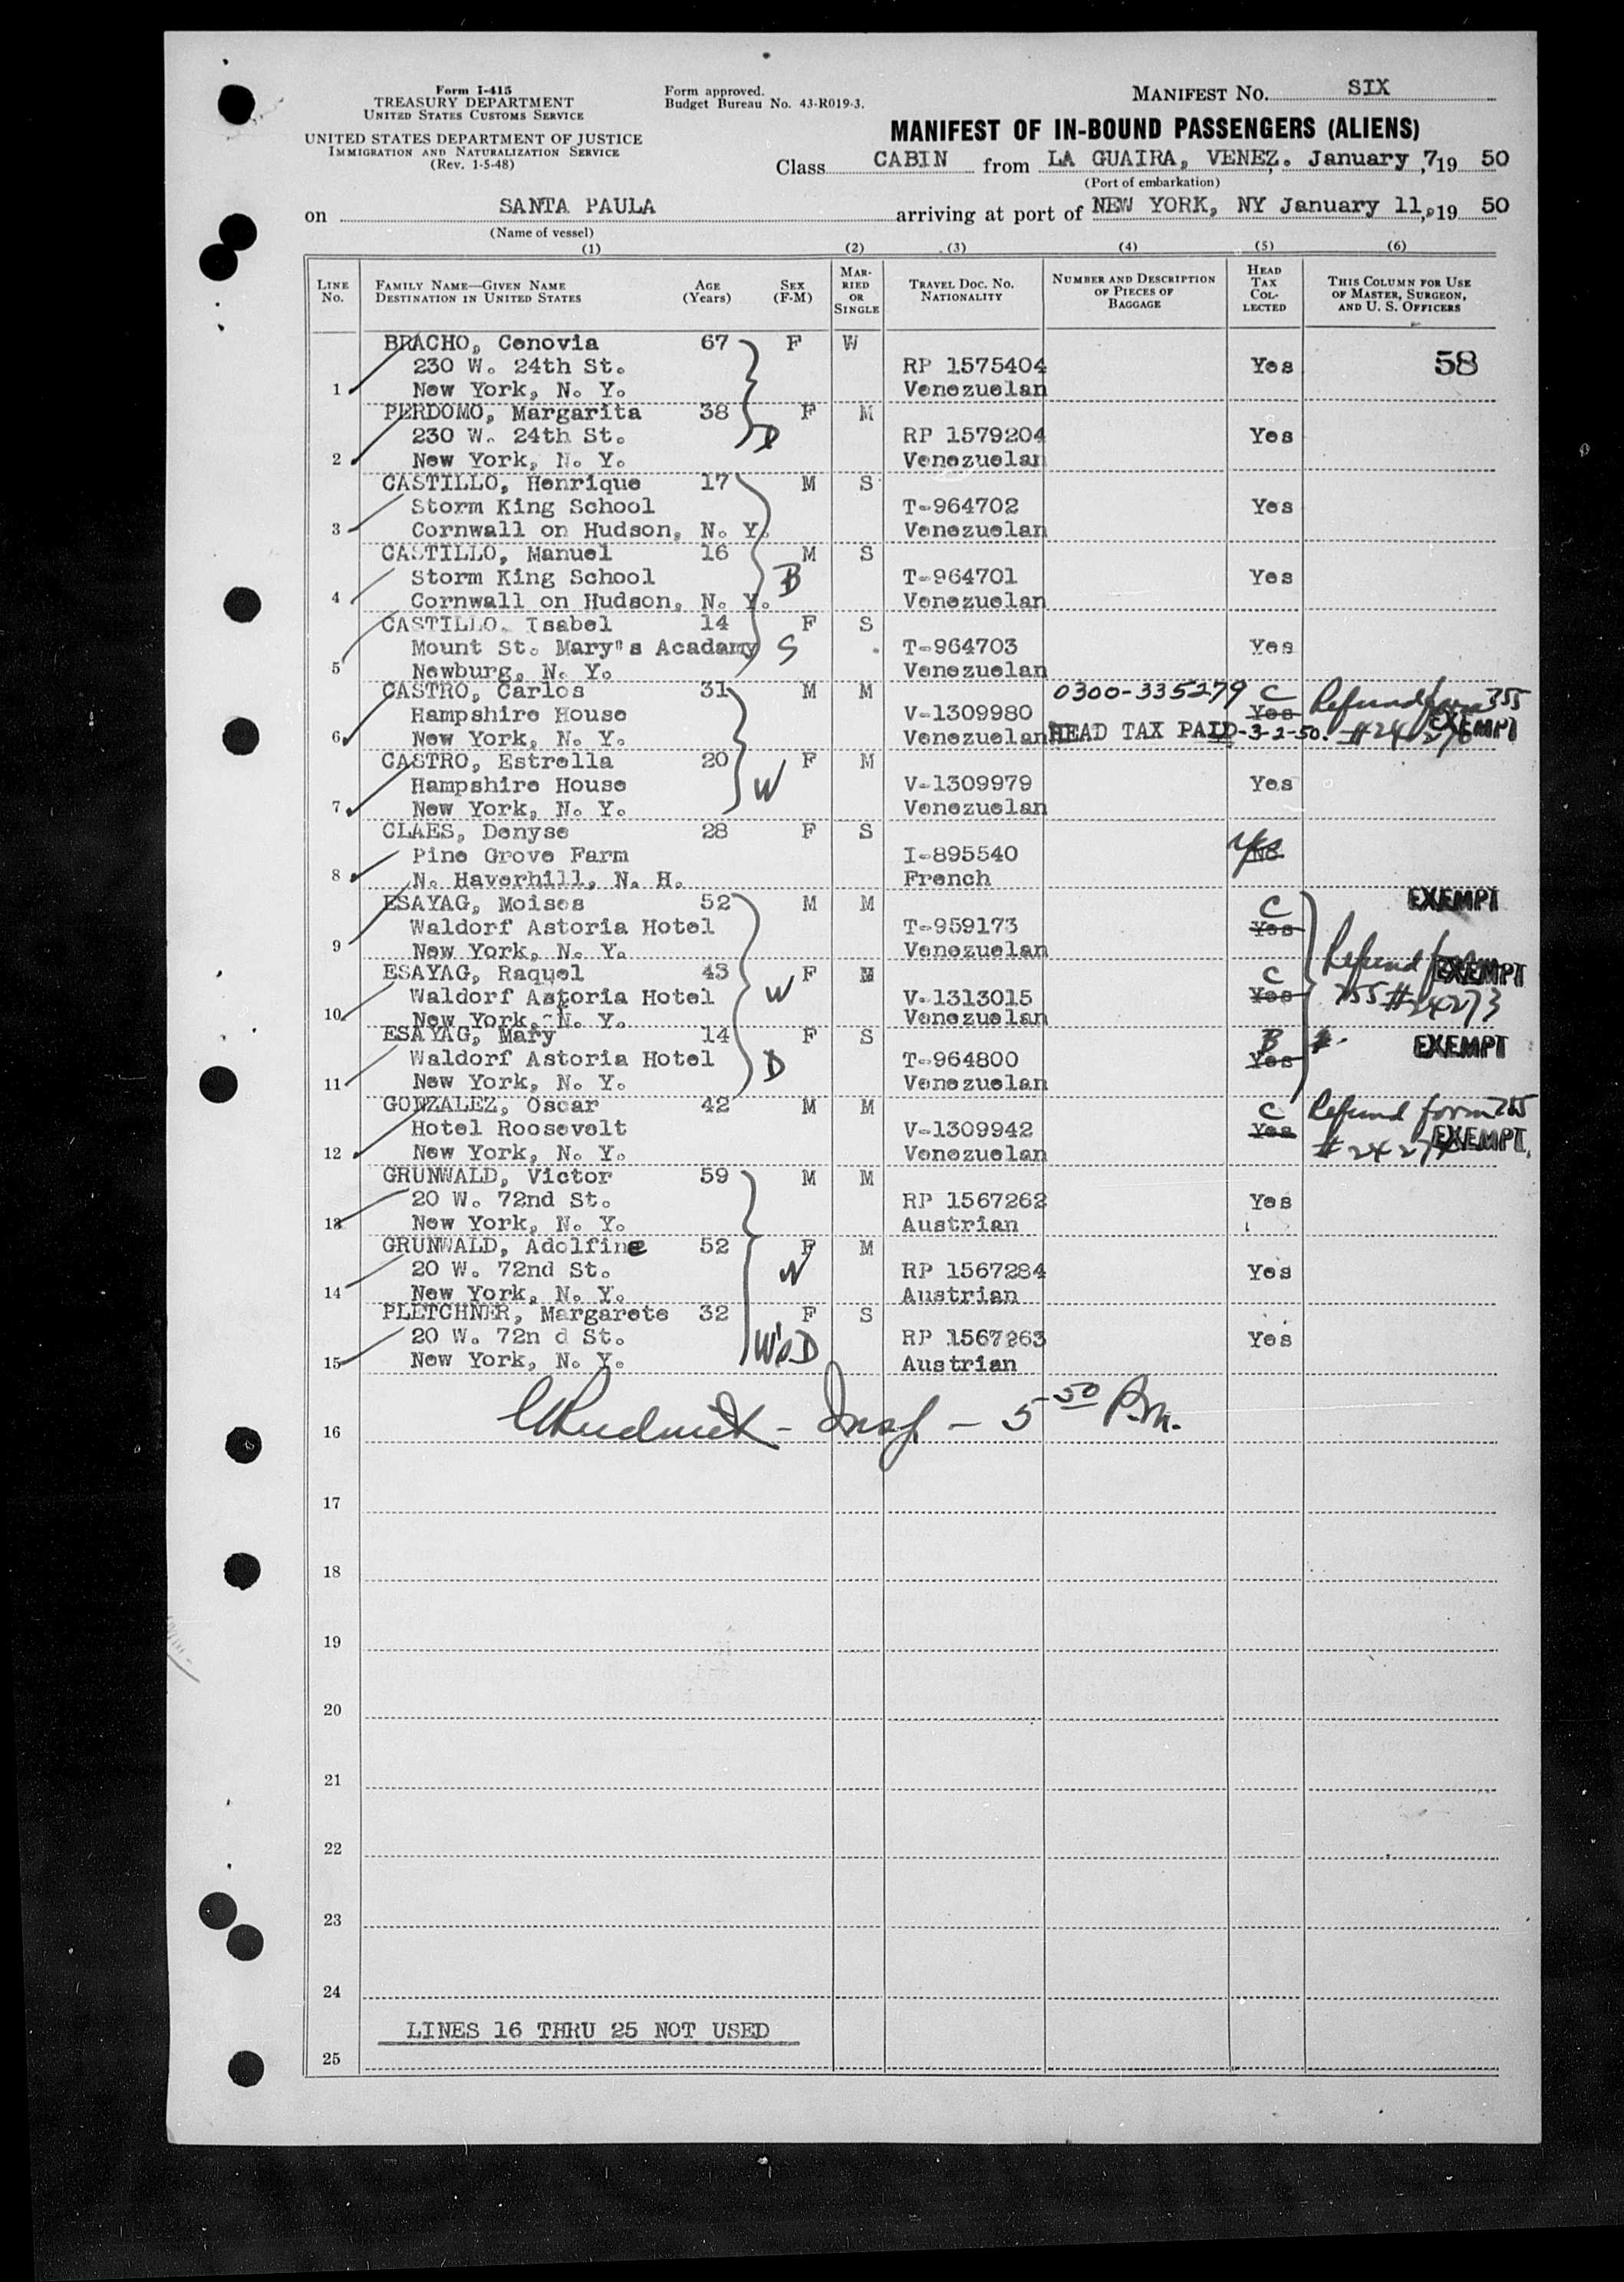 Form I-415
TREASURY DEPARTMENT
UNITED STATES CUSTOMS SERVICE
UNITED STATES DEPARTMENT OF JUSTICE
IMMIGRATION AND NATURALIZATION SERVICE
(Rev. 1-5-48)
Form approved.
Budget Bureau No. 43-R019-3.
MANIFEST NO. SIX
MANIFEST OF IN-BOUND PASSENGERS (ALIENS)
Class CABIN from LA GUAIRA, VENEZ. January 7, 19 50
(Port of embarkation)
on SANTA PAULA arriving at port of NEW YORK, NY January 11, 19 50
(Name of vessel)
(1) (2) (3) (4) (5) (6)
LINE No. FAMILY NAME—GIVEN NAME DESTINATION IN UNITED STATES AGE (Years) SEX (F-M) MARRIED OR SINGLE TRAVEL DOC. NO. NATIONALITY NUMBER AND DESCRIPTION OF PIECES OF BAGGAGE HEAD TAX COLLECTED THIS COLUMN FOR USE OF MASTER, SURGEON, AND U. S. OFFICERS
BRACHO, Cenovia 67 F W
230 W. 24th St. RP 1575404 Yes 58
1 New York, N. Y. Venezuelan
PERDOMO, Margarita 38 F M
230 W. 24th St. D RP 1579204 Yes
2 New York, N. Y. Venezuelan
CASTILLO, Henrique 17 M S
Storm King School T-964702 Yes
3 Cornwall on Hudson, N. Y. Venezuelan
CASTILLO, Manuel 16 M S
Storm King School B T-964701 Yes
4 Cornwall on Hudson, N. Y. Venezuelan
CASTILLO, Isabel 14 F S
Mount St. Mary"s Acadamy S T-964703 Yes
5 Newburg, N. Y. Venezuelan
CASTRO, Carlos 31 M M 0300-335279 C Refund form 755
Hampshire House V-1309980 Yes EXEMPT
6 New York, N. Y. Venezuelan HEAD TAX PAID-3-2-50. #24276
CASTRO, Estrella 20 F M
Hampshire House W V-1309979 Yes
7 New York, N. Y. Venezuelan
CLAES, Denyse 28 F S
Pine Grove Farm I-895540 Yes No
8 N. Haverhill, N. H. French
ESAYAG, Moises 52 M M C EXEMPT
Waldorf Astoria Hotel T-959173 Yes
9 New York, N. Y. Venezuelan Refund form
ESAYAG, Raquel 43 F M C EXEMPT
Waldorf Astoria Hotel W V-1313015 Yes 755 #24273
10 New York, N. Y. Venezuelan
ESAYAG, Mary 14 F S B EXEMPT
Waldorf Astoria Hotel D T-964800 Yes
11 New York, N. Y. Venezuelan
GONZALEZ, Oscar 42 M M C Refund form 755
Hotel Roosevelt V-1309942 Yes EXEMPT
12 New York, N. Y. Venezuelan
GRUNWALD, Victor 59 M M
20 W. 72nd St. RP 1567262 Yes
13 New York, N. Y. Austrian
GRUNWALD, Adolfine 52 F M
20 W. 72nd St. W RP 1567284 Yes
14 New York, N. Y. Austrian
PLETCHNER, Margarete 32 F S
20 W. 72n d St. W's D RP 1567263 Yes
15 New York, N. Y. Austrian
Insp - 5 50 P.m.
16
17
18
19
20
21
22
23
24
LINES 16 THRU 25 NOT USED
25